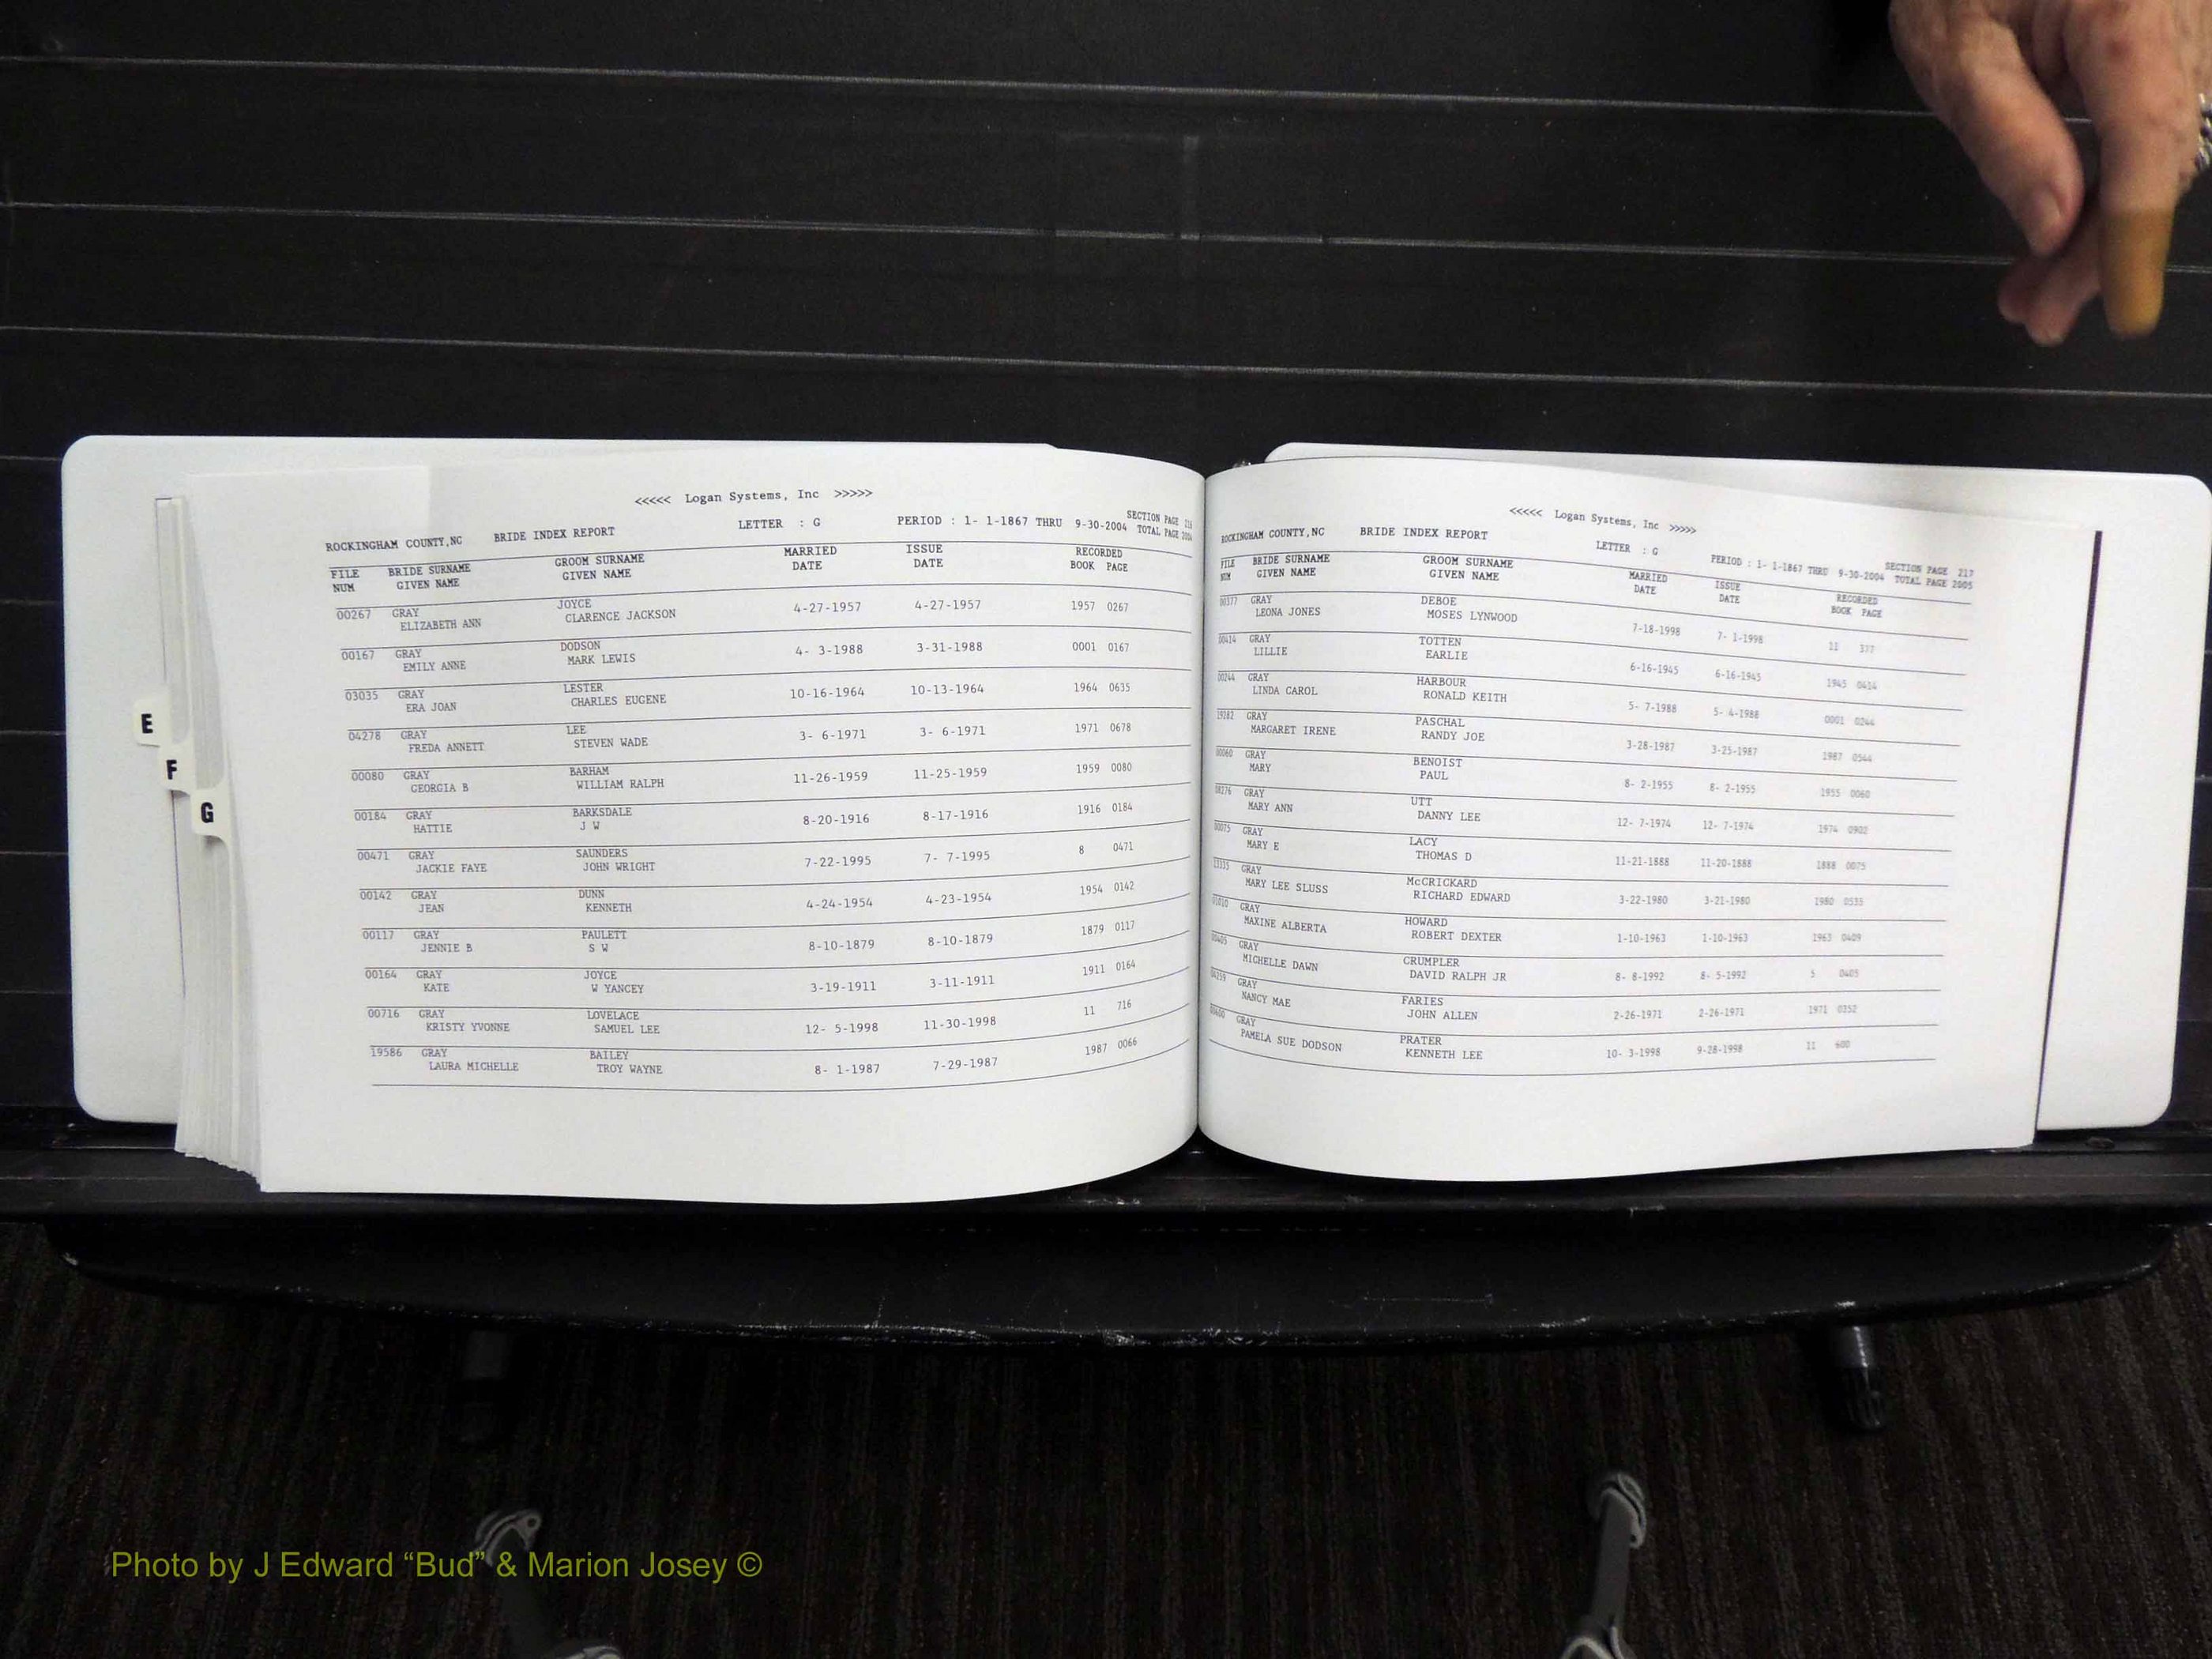 <<<<< Logan Systems, Inc >>>>>
ROCKINGHAM COUNTY,NC BRIDE INDEX REPORT LETTER : G PERIOD : 1- 1-1867 THRU 9-30-2004 SECTION PAGE TOTAL PAGE
FILE BRIDE SURNAME GROOM SURNAME MARRIED ISSUE RECORDED
NUM GIVEN NAME GIVEN NAME DATE DATE BOOK PAGE
00267 GRAY JOYCE 4-27-1957 4-27-1957 1957 0267
ELIZABETH ANN CLARENCE JACKSON
00167 GRAY DODSON 4- 3-1988 3-31-1988 0001 0167
EMILY ANNE MARK LEWIS
03035 GRAY LESTER 10-16-1964 10-13-1964 1964 0635
ERA JOAN CHARLES EUGENE
04278 GRAY LEE 3- 6-1971 3- 6-1971 1971 0678
FREDA ANNETT STEVEN WADE
00080 GRAY BARHAM 11-26-1959 11-25-1959 1959 0080
GEORGIA B WILLIAM RALPH
00184 GRAY BARKSDALE 8-20-1916 8-17-1916 1916 0184
HATTIE J W
00471 GRAY SAUNDERS 7-22-1995 7- 7-1995 8 0471
JACKIE FAYE JOHN WRIGHT
00142 GRAY DUNN 4-24-1954 4-23-1954 1954 0142
JEAN KENNETH
00117 GRAY PAULETT 8-10-1879 8-10-1879 1879 0117
JENNIE B S W
00164 GRAY JOYCE 3-19-1911 3-11-1911 1911 0164
KATE W YANCEY
00716 GRAY LOVELACE 12- 5-1998 11-30-1998 11 716
KRISTY YVONNE SAMUEL LEE
19586 GRAY BAILEY 8- 1-1987 7-29-1987 1987 0066
LAURA MICHELLE TROY WAYNE
E
F
G
<<<<< Logan Systems, Inc >>>>>
ROCKINGHAM COUNTY,NC BRIDE INDEX REPORT LETTER : G PERIOD : 1- 1-1867 THRU 9-30-2004 SECTION PAGE 217 TOTAL PAGE 2005
FILE BRIDE SURNAME GROOM SURNAME MARRIED ISSUE RECORDED
NUM GIVEN NAME GIVEN NAME DATE DATE BOOK PAGE
00377 GRAY DEBOE 7-18-1998 7- 1-1998 11 377
LEONA JONES MOSES LYNWOOD
00414 GRAY TOTTEN 6-16-1945 6-16-1945 1945 0414
LILLIE EARLIE
00244 GRAY HARBOUR 5- 7-1988 5- 4-1988 0001 0244
LINDA CAROL RONALD KEITH
19282 GRAY PASCHAL 3-28-1987 3-25-1987 1987 0544
MARGARET IRENE RANDY JOE
00060 GRAY BENOIST 8- 2-1955 8- 2-1955 1955 0060
MARY PAUL
08276 GRAY UTT 12- 7-1974 12- 7-1974 1974 0902
MARY ANN DANNY LEE
00075 GRAY LACY 11-21-1888 11-20-1888 1888 0075
MARY E THOMAS D
GRAY McCRICKARD 3-22-1980 3-21-1980 1980 0535
MARY LEE SLUSS RICHARD EDWARD
01010 GRAY HOWARD 1-10-1963 1-10-1963 1963 0409
MAXINE ALBERTA ROBERT DEXTER
00405 GRAY CRUMPLER 8- 8-1992 8- 5-1992 5 0405
MICHELLE DAWN DAVID RALPH JR
04259 GRAY FARIES 2-26-1971 2-26-1971 1971 0352
NANCY MAE JOHN ALLEN
00600 GRAY PRATER 10- 3-1998 9-28-1998 11 600
PAMELA SUE DODSON KENNETH LEE
Photo by J Edward “Bud” & Marion Josey ©